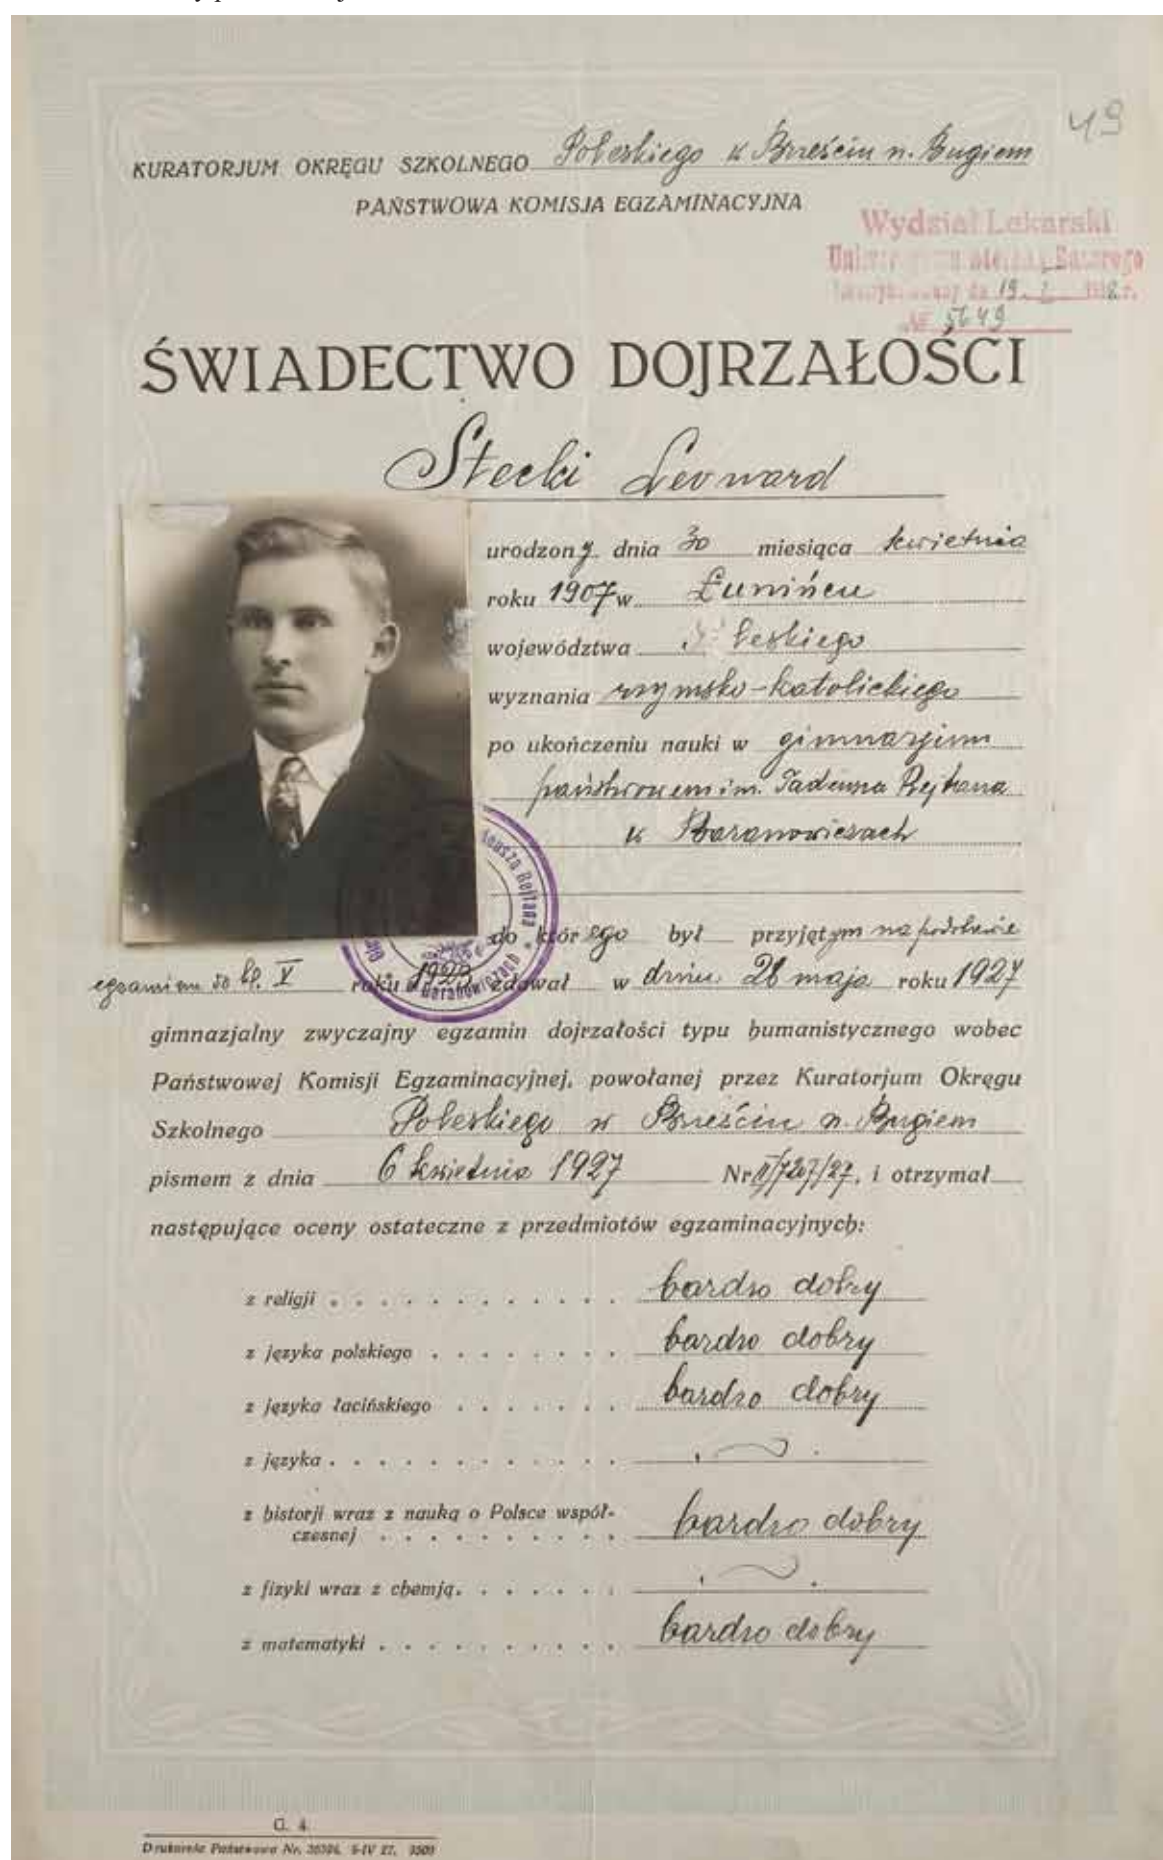 49
KURATORJUM OKRĘGU SZKOLNEGO Poleskiego w Brześciu n. Bugiem
PAŃSTWOWA KOMISJA EGZAMINACYJNA
Wydział Lekarski
Batorego
19. I
№ 5649
ŚWIADECTWO DOJRZAŁOŚCI
Stecki Leonard
urodzony dnia 30 miesiąca kwietnia
roku 1907 w Łunińcu
województwa Poleskiego
wyznania rzymsko-katolickiego
po ukończeniu nauki w gimnazjum
państwowem im. Tadeusza Rejtana
w Baranowiczach
do którego był przyjętym na podstawie
egzaminu do kl. V roku 1923 zdawał w dniu 28 maja roku 1927
gimnazjalny zwyczajny egzamin dojrzałości typu humanistycznego wobec
Państwowej Komisji Egzaminacyjnej, powołanej przez Kuratorjum Okręgu
Szkolnego Poleskiego w Brześciu n. Bugiem
pismem z dnia 6 kwietnia 1927 Nr II/727/27, i otrzymał
następujące oceny ostateczne z przedmiotów egzaminacyjnych:
z religji . . . . . . . . . . . . bardzo dobry
z języka polskiego . . . . . . . . bardzo dobry
z języka łacińskiego . . . . . . . bardzo dobry
z języka . . . . . . . . . . . .
z historji wraz z nauką o Polsce współ-
czesnej . . . . . . . . . . bardzo dobry
z fizyki wraz z chemją. . . . . . .
z matematyki . . . . . . . . . . bardzo dobry
G. 4.
Drukarnia Państwowa Nr. 36304. 5-IV 27. 3500